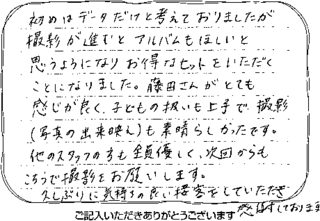 初めはデータだけと考えておりましたが
撮影が進むとアルバムもほしいと
思うようになりお得なセットをいただく
ことになりました。藤田さんがとても
感じが良く、子どもの扱いも上手で撮影
(写真の出来映え)も素晴らしかったです。
他のスタッフの方も全員優しく、次回からも
こちらで撮影をお願いします。
久しぶりに気持ちの良い接客をしていただき
感謝しております
ご記入いただきありがとうございます